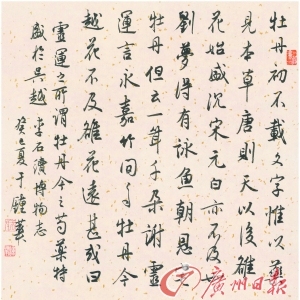 牡丹初不載文字惟以藥
見本草唐則天以後雒
花始盛沈宋元白亦不及
劉夢得有詠魚朝恩宅
牡丹但云一叢千朵謝靈
運言永嘉竹間多牡丹今
越花不及雒花遠甚或曰
靈運之所謂牡丹今之芍藥特
盛於吳越 李石續博物志
癸巳夏于鍾華
廣州日報